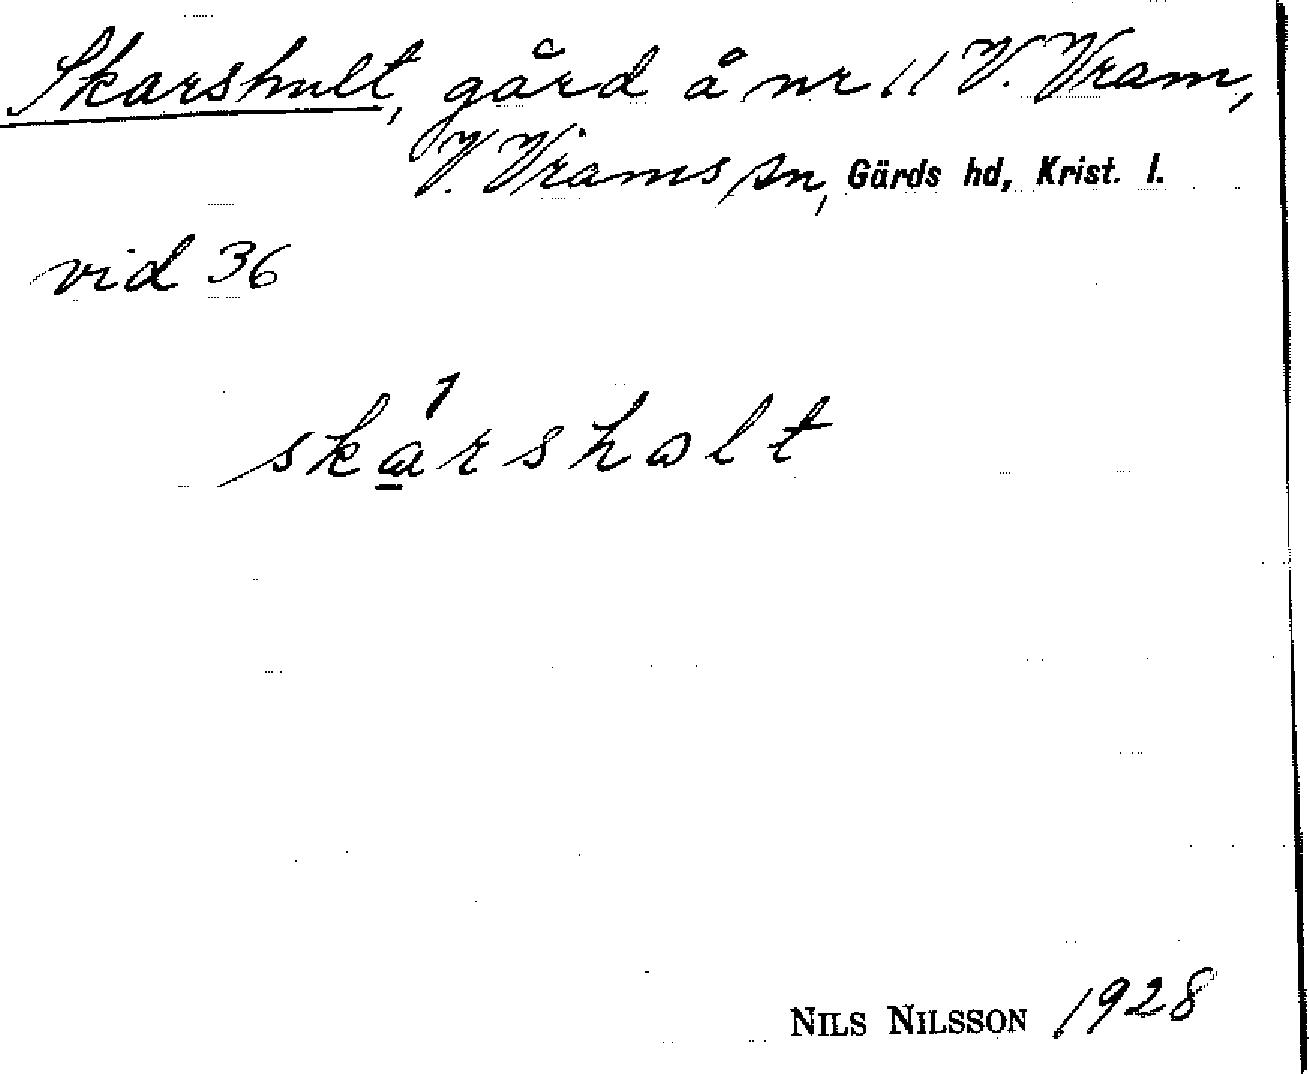 Skarshult, gård å nr 11 V. Vram,
V. Vrams sn, Gärds hd, Krist. l.
vid 36
skarsholt
NILS NILSSON 1928